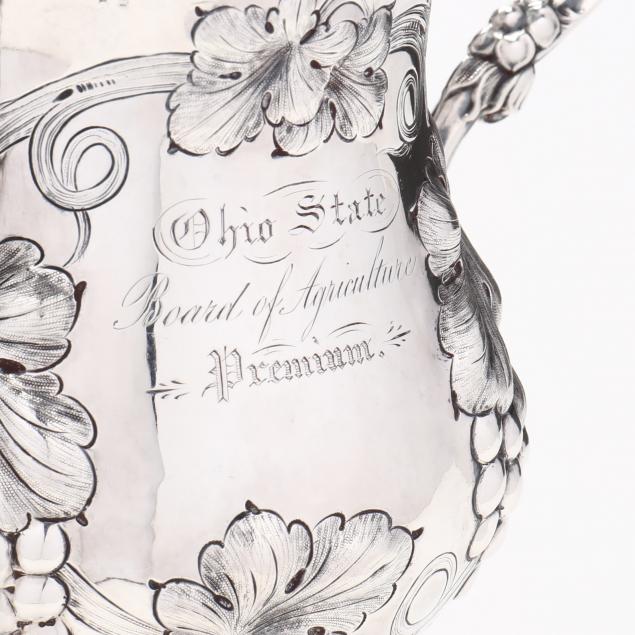 Ohio State
Board of Agriculture
Premium.